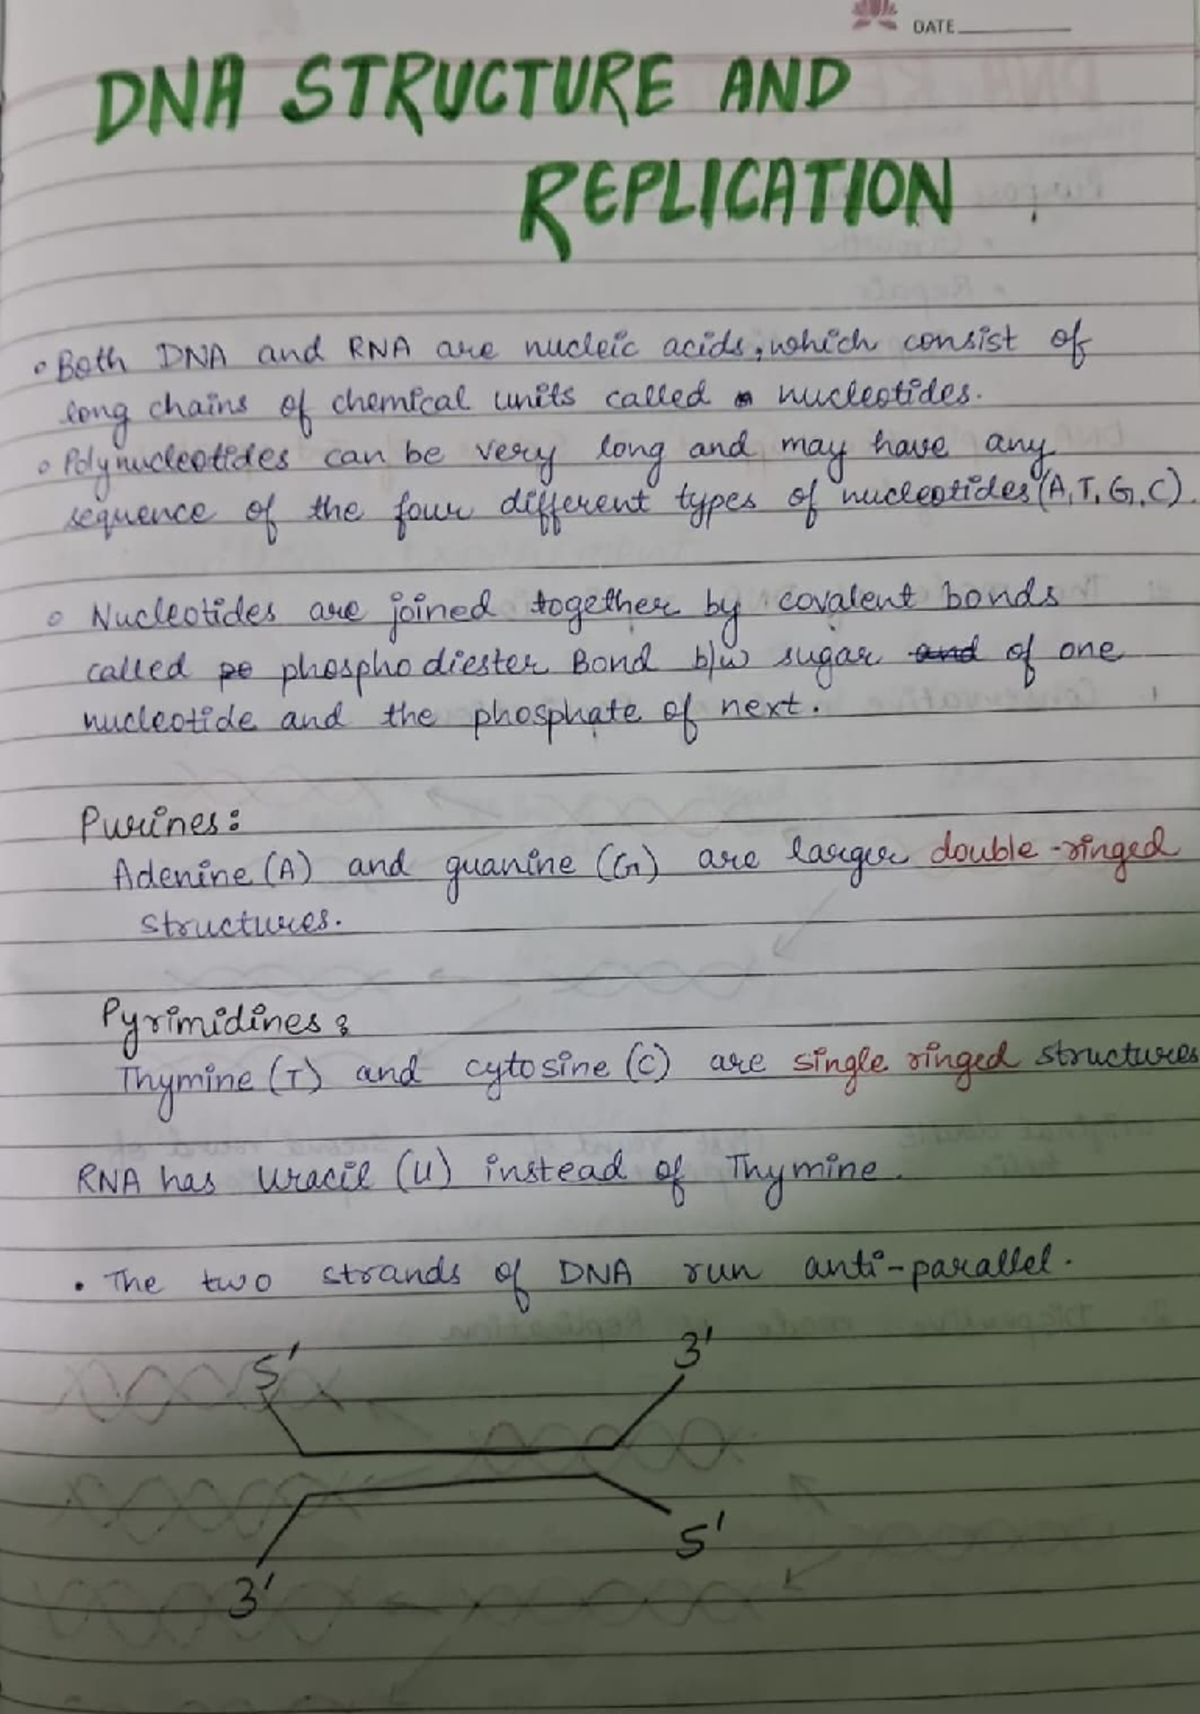 DATE
DNA STRUCTURE AND
REPLICATION
Both DNA and RNA are nucleic acids, which consist of
long chains of chemical units called nucleotides.
Polynucleotides can be very long and may have any
sequence of the four different types of nucleotides (A, T, G, C).
Nucleotides are joined together by covalent bonds
called po phosphodiester Bond b/w sugar and of one
nucleotide and the phosphate of next.
Purines:
Adenine (A) and guanine (G) are larger double-ringed
structures.
Pyrimidines:
Thymine (T) and cytosine (C) are single ringed structures
RNA has Uracil (U) instead of Thymine.
• The two strands of DNA run anti-parallel.
5' 3'
5'
3'